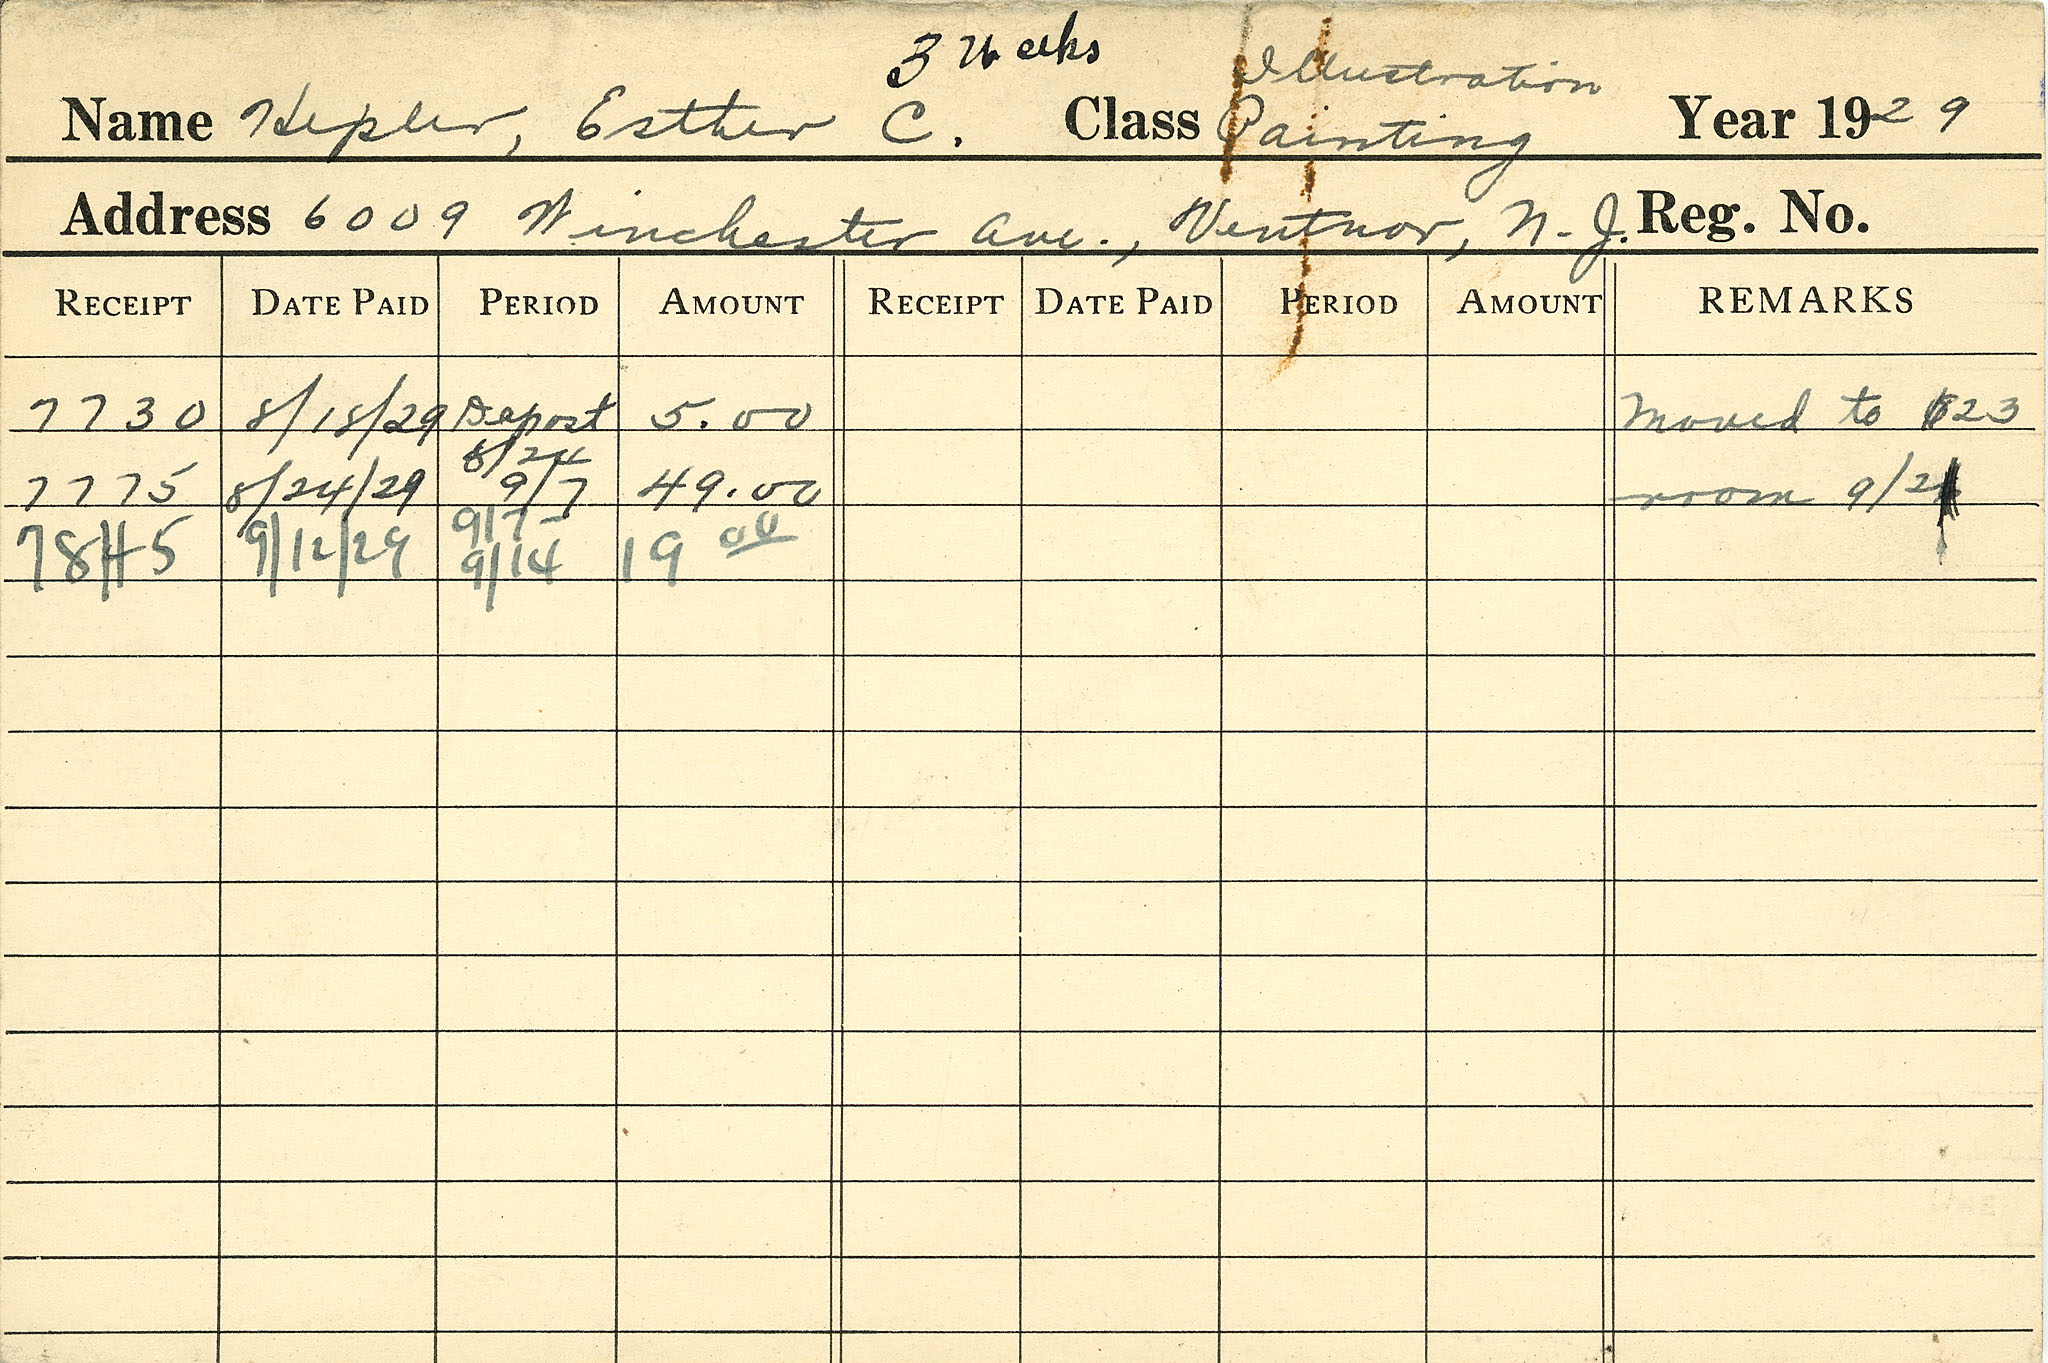 3 Weeks
Illustration
Name Hepler, Esther C. Class Painting Year 1929
Address 6009 Winchester Ave., Ventnor, N. J. Reg. No.
RECEIPT DATE PAID PERIOD AMOUNT RECEIPT DATE PAID PERIOD AMOUNT REMARKS
7730 8/18/29 Depost 5.00 Moved to $23
8/24
7775 8/24/29 9/7 49.00 room
9/7-
7845 9/12/29 9/14 19 00